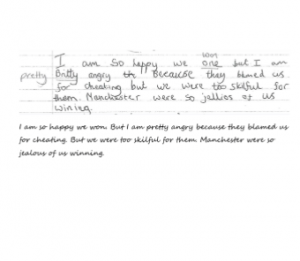 won
I am so happy we one but I am
pretty pritty angry th Because they blamed us
for cheating but we were too skilful for
them. Manchester were so jellios of us
wining
I am so happy we won. But I am pretty angry because they blamed us
for cheating. But we were too skilful for them. Manchester were so
jealous of us winning.